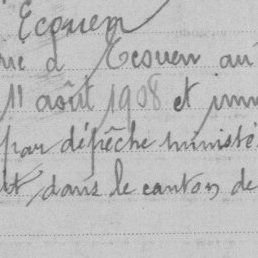 Ecouen
d'Ecouen au
11 août 1908 et
par dépêche ministé
dans le canton de